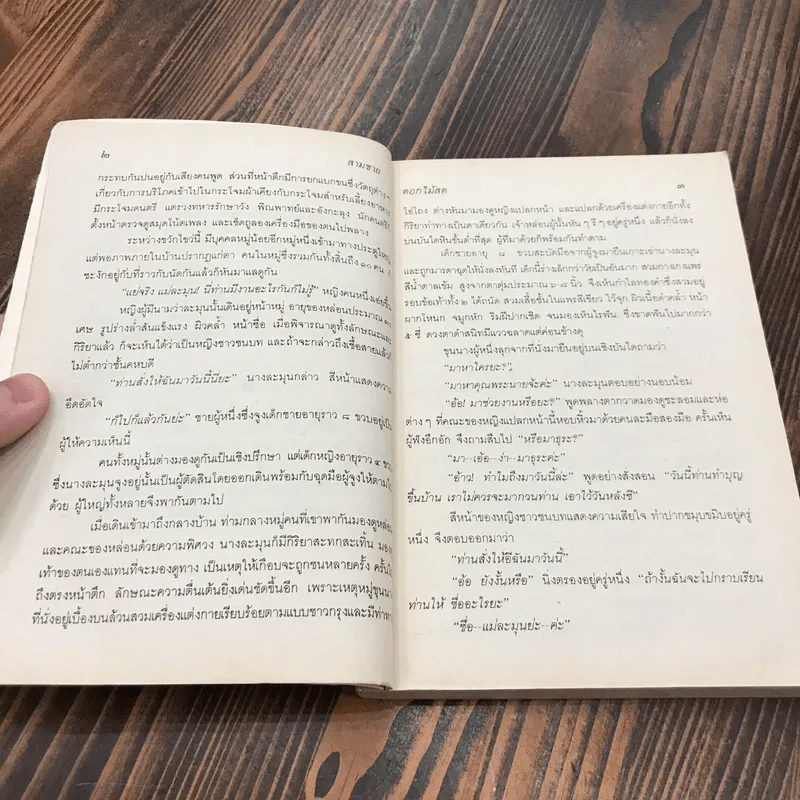 ๒
สามชาย
กระทบกันปนอยู่กับเสียงคนพูด ส่วนที่หน้าตึกมีการยกแบกขนซึ่งวัตถุต่าง ๆ
เกี่ยวกับการบริโภคเข้าไปในกระโจมผ้าเคียงกับกระโจมสำหรับเลี้ยงอาหาร
มีกระโจมดนตรี แตรวงทหารรักษาวัง พิณพาทย์และอังกะลุง นักดนตรี
ตั้งหน้าตรวจดูสมุดโน้ตเพลง และเช็ดถูลองเครื่องมือของตนไปพลาง
ระหว่างขวักไขว่นี้ มีบุคคลหมู่น้อยอีกหมู่หนึ่งเข้ามาทางประตูใหญ่
แต่พอภาพภายในบ้านปรากฏแก่ตา คนในหมู่ซึ่งรวมกันทั้งสิ้นถึง ๑๐ คน ก็
ชะงักอยู่กับที่ราวกับนัดกันแล้วก็หันมาแลดูกัน
“แย่จริง แม่ละมุน! นี่ท่านมีงานอะไรกันก็ไม่รู้” หญิงคนหนึ่งเอ่ยขึ้น
หญิงผู้มีนามว่าละมุนนั้นเดินอยู่หน้าหมู่ อายุของหล่อนประมาณ
เศษ รูปร่างล่ำสันแข็งแรง ผิวคล้ำ หน้าซื่อ เมื่อพิจารณาดูทั้งลักษณะและ
กิริยาแล้ว ก็จะเห็นได้ว่าเป็นหญิงชาวชนบท และถ้าจะกล่าวถึงเชื้อสายแล้วก็
ไม่ต่ำกว่าชั้นคหบดี
“ท่านสั่งให้ฉันมาวันนี้นี่ยะ” นางละมุนกล่าว สีหน้าแสดงความ
อึดอัดใจ
“ก็ไปก็แล้วกันย่ะ” ชายผู้หนึ่งซึ่งจูงเด็กชายอายุราว ๘ ขวบอยู่เป็น
ผู้ให้ความเห็นนี้
คนทั้งหมู่นั้นต่างมองดูกันเป็นเชิงปรึกษา แต่เด็กหญิงอายุราว ๔ ขวบ
ซึ่งนางละมุนจูงอยู่นั้นเป็นผู้ตัดสินโดยออกเดินพร้อมกับฉุดมือผู้จูงให้ตามไป
ด้วย ผู้ใหญ่ทั้งหลายจึงพากันตามไป
เมื่อเดินเข้ามาถึงกลางบ้าน ท่ามกลางหมู่คนที่เขาพากันมองดูหล่อน
และคณะของหล่อนด้วยความพิศวง นางละมุนก็มีกิริยาสะทกสะเทิ้น มอง
เท้าของตนเองแทนที่จะมองดูทาง เป็นเหตุให้เกือบจะถูกชนหลายครั้ง ครั้น
ถึงตรงหน้าตึก ลักษณะความตื่นเต้นยิ่งเด่นชัดขึ้นอีก เพราะเหตุหมู่ขุนนาง
ที่นั่งอยู่เบื้องบนล้วนสวมเครื่องแต่งกายเรียบร้อยตามแบบชาวกรุงและมีท่าทาง
ดอกไม้สด
๓
โอ่โถง ต่างหันมามองดูหญิงแปลกหน้า และแปลกด้วยเครื่องแต่งกายอีกทั้ง
กิริยาท่าทางเป็นตาเดียวกัน เจ้าหล่อนผู้นั้นหัน ๆ รี ๆ อยู่ครู่หนึ่ง แล้วก็นั่งลง
บนบันไดหินขั้นต่ำที่สุด ผู้ที่มาด้วยก็พร้อมกันทำตาม
เด็กชายอายุ ๘ ขวบสะบัดมือจากผู้จูงมายืนเกาะเข่านางละมุน
และถูกมารดาฉุดให้นั่งลงทันที เด็กนี้ร่างเล็กกว่าวัยเป็นอันมาก สวมกางเกงแพร
สีน้ำตาลเข้ม สูงจากตาตุ่มประมาณ ๖-๗ นิ้ว จึงเห็นกำไลทองคำซึ่งสวมอยู่
รอบข้อเท้าทั้ง ๒ ได้ถนัด สวมเสื้อชั้นในแพรสีเขียว ไว้จุก ผิวเนื้อดำคล้ำ หน้า
ผากโหนก จมูกหัก ริมฝีปากเชิด จนมองเห็นไรฟัน ซึ่งขาดฟันไปมากกว่า
๕ ซี่ ดวงตาดำสนิทมีแววฉลาดแต่ค่อนข้างดุ
ขุนนางผู้หนึ่งลุกจากที่นั่งมายืนอยู่บนเชิงบันไดถามว่า
“มาหาใครยะ?”
“มาหาคุณพระนายจ้ะค่ะ” นางละมุนตอบอย่างนอบน้อม
“อ้อ! มาช่วยงานหรือยะ?” พูดพลางตากวาดมองดูชะลอมและห่อ
ต่าง ๆ ที่คณะของหญิงแปลกหน้านี้หอบหิ้วมาด้วยคนละมือสองมือ ครั้นเห็น
ผู้ฟังอึกอัก จึงถามสืบไป “หรือมาธุระ?”
“มา--เอ้อ--ง่า--มาธุระค่ะ”
“อ้าว! ทำไมถึงมาวันนี้ล่ะ” พูดอย่างสั่งสอน “วันนี้ท่านทำบุญ
ขึ้นบ้าน เราไม่ควรจะมากวนท่าน เอาไว้วันหลังซี”
สีหน้าของหญิงชาวชนบทแสดงความเสียใจ ทำปากขมุบขมิบอยู่ครู่
หนึ่ง จึงตอบออกมาว่า
“ท่านสั่งให้อีฉันมาวันนี้”
“อ้อ ยังงั้นหรือ” นิ่งตรองอยู่ครู่หนึ่ง “ถ้างั้นฉันจะไปกราบเรียน
ท่านให้ ชื่ออะไรยะ”
“ชื่อ--แม่ละมุนย่ะ--ค่ะ”